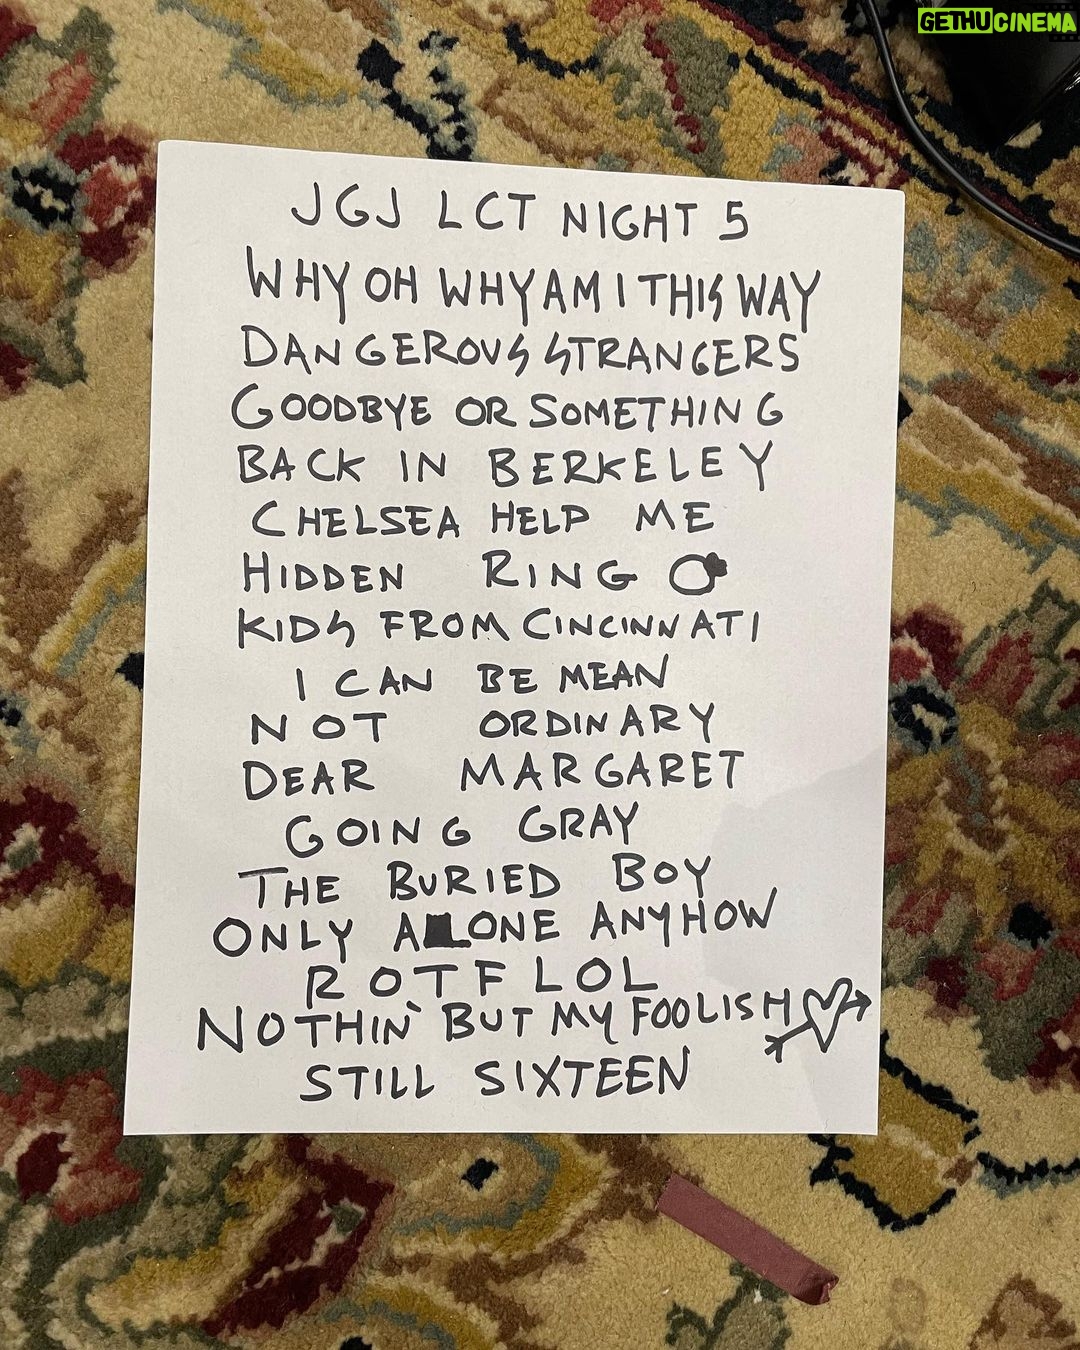 GETHUCINEMA
JGJ LCT NIGHT 5
WHY OH WHY AM I THIS WAY
DANGEROUS STRANGERS
GOODBYE OR SOMETHING
BACK IN BERKELEY
CHELSEA HELP ME
HIDDEN RING
KIDS FROM CINCINNATI
I CAN BE MEAN
NOT ORDINARY
DEAR MARGARET
GOING GRAY
THE BURIED BOY
ONLY ALONE ANYHOW
ROTFLOL
NOTHIN' BUT MY FOOLISH
STILL SIXTEEN